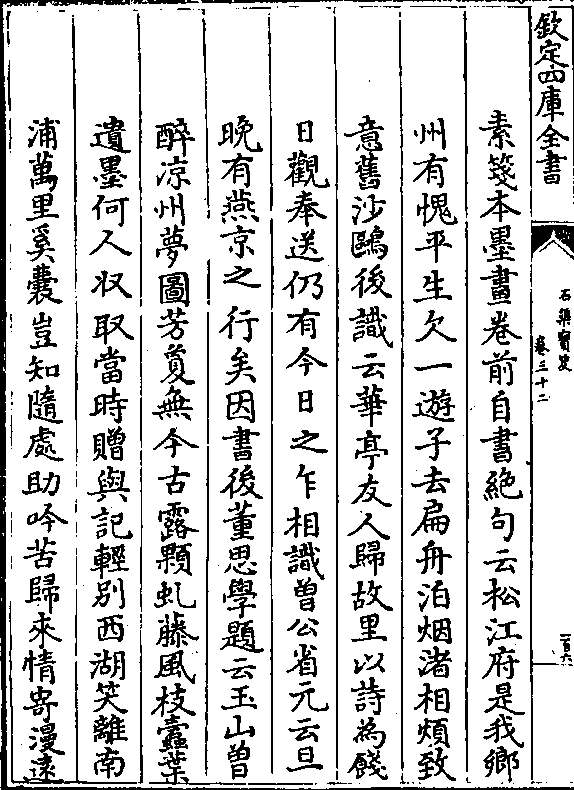 欽定四庫全書
石渠寳笈
卷三十二
一百六
素箋本墨畫卷前自書絶句云松江府是我鄉
州有愧平生欠一遊子去扁舟泊烟渚相煩致
意舊沙鷗後識云華亭友人歸故里以詩為餞
日觀奉送仍有今日之乍相識曽公省元云旦
晚有燕京之行矣因書後董思學題云玉山曽
醉涼州夢圖芳夐無今古露顆虬藤風枝蠧葉
遺墨何人収取當時贈與記輕别西湖笑離南
浦萬里奚囊豈知隨處助吟苦歸來情寄漫遠